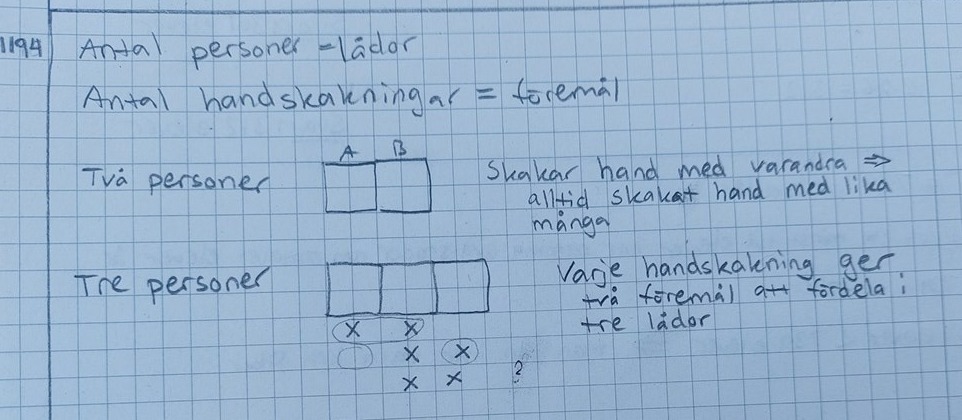 1194 Antal personer = lådor
Antal handskakningar = föremål
A B
Två personer
Skakar hand med varandra ⇒
alltid skakat hand med lika
många
Tre personer
Varje handskakning ger
två föremål att fördela i
tre lådor
x x
x x
x x ?